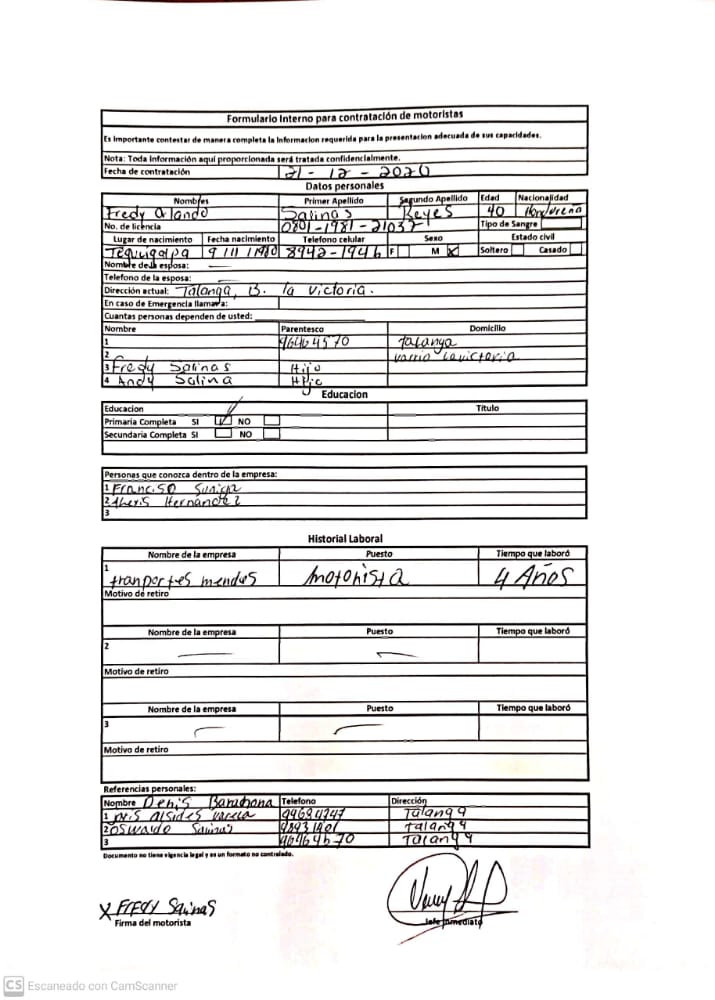 Formulario Interno para contratación de motoristas
Es importante contestar de manera completa la informacion requerida para la presentacion adecuada de sus capacidades.
Nota: Toda información aquí proporcionada será tratada confidencialmente.
Fecha de contratación 21-12-2020
Datos personales
Nombres Primer Apellido Segundo Apellido Edad Nacionalidad
Fredy Orlando Salinas Reyes 40 Hondureña
No. de licencia 0801-1981-21037 Tipo de Sangre
Lugar de nacimiento Fecha nacimiento Telefono celular Sexo Estado civil
Teguigalpa 9 8942-1946 F M X Soltero Casado
Nombre de la esposa: —
Telefono de la esposa: —
Dirección actual: Talanga, B. la victoria.
En caso de Emergencia llamar a:
Cuantas personas dependen de usted:
Nombre Parentesco Domicilio
1 96464570 Talanga
2 varrio lavictoria
3 Fredy Salinas Hijo
4 Andy Salina
Educacion
Educacion Título
Primaria Completa SI NO
Secundaria Completa SI NO
Personas que conozca dentro de la empresa:
1 Franciso Suniga
2 Hernandez
3
Historial Laboral
Nombre de la empresa Puesto Tiempo que laboró
1
tranportes mendes motorista 4 Años
Motivo de retiro
Nombre de la empresa Puesto Tiempo que laboró
2 — —
Motivo de retiro
Nombre de la empresa Puesto Tiempo que laboró
3 — —
Motivo de retiro
Referencias personales:
Nombre Denis Barahona Telefono Dirección
1 alsides varela Talanga
2 oswaldo Salinas Talanga
3 96464570 Talanga
Documento no tiene vigencia legal y es un formato no controlado.
X FREDY Salinas
Firma del motorista
Jefe inmediato
CS Escaneado con CamScanner